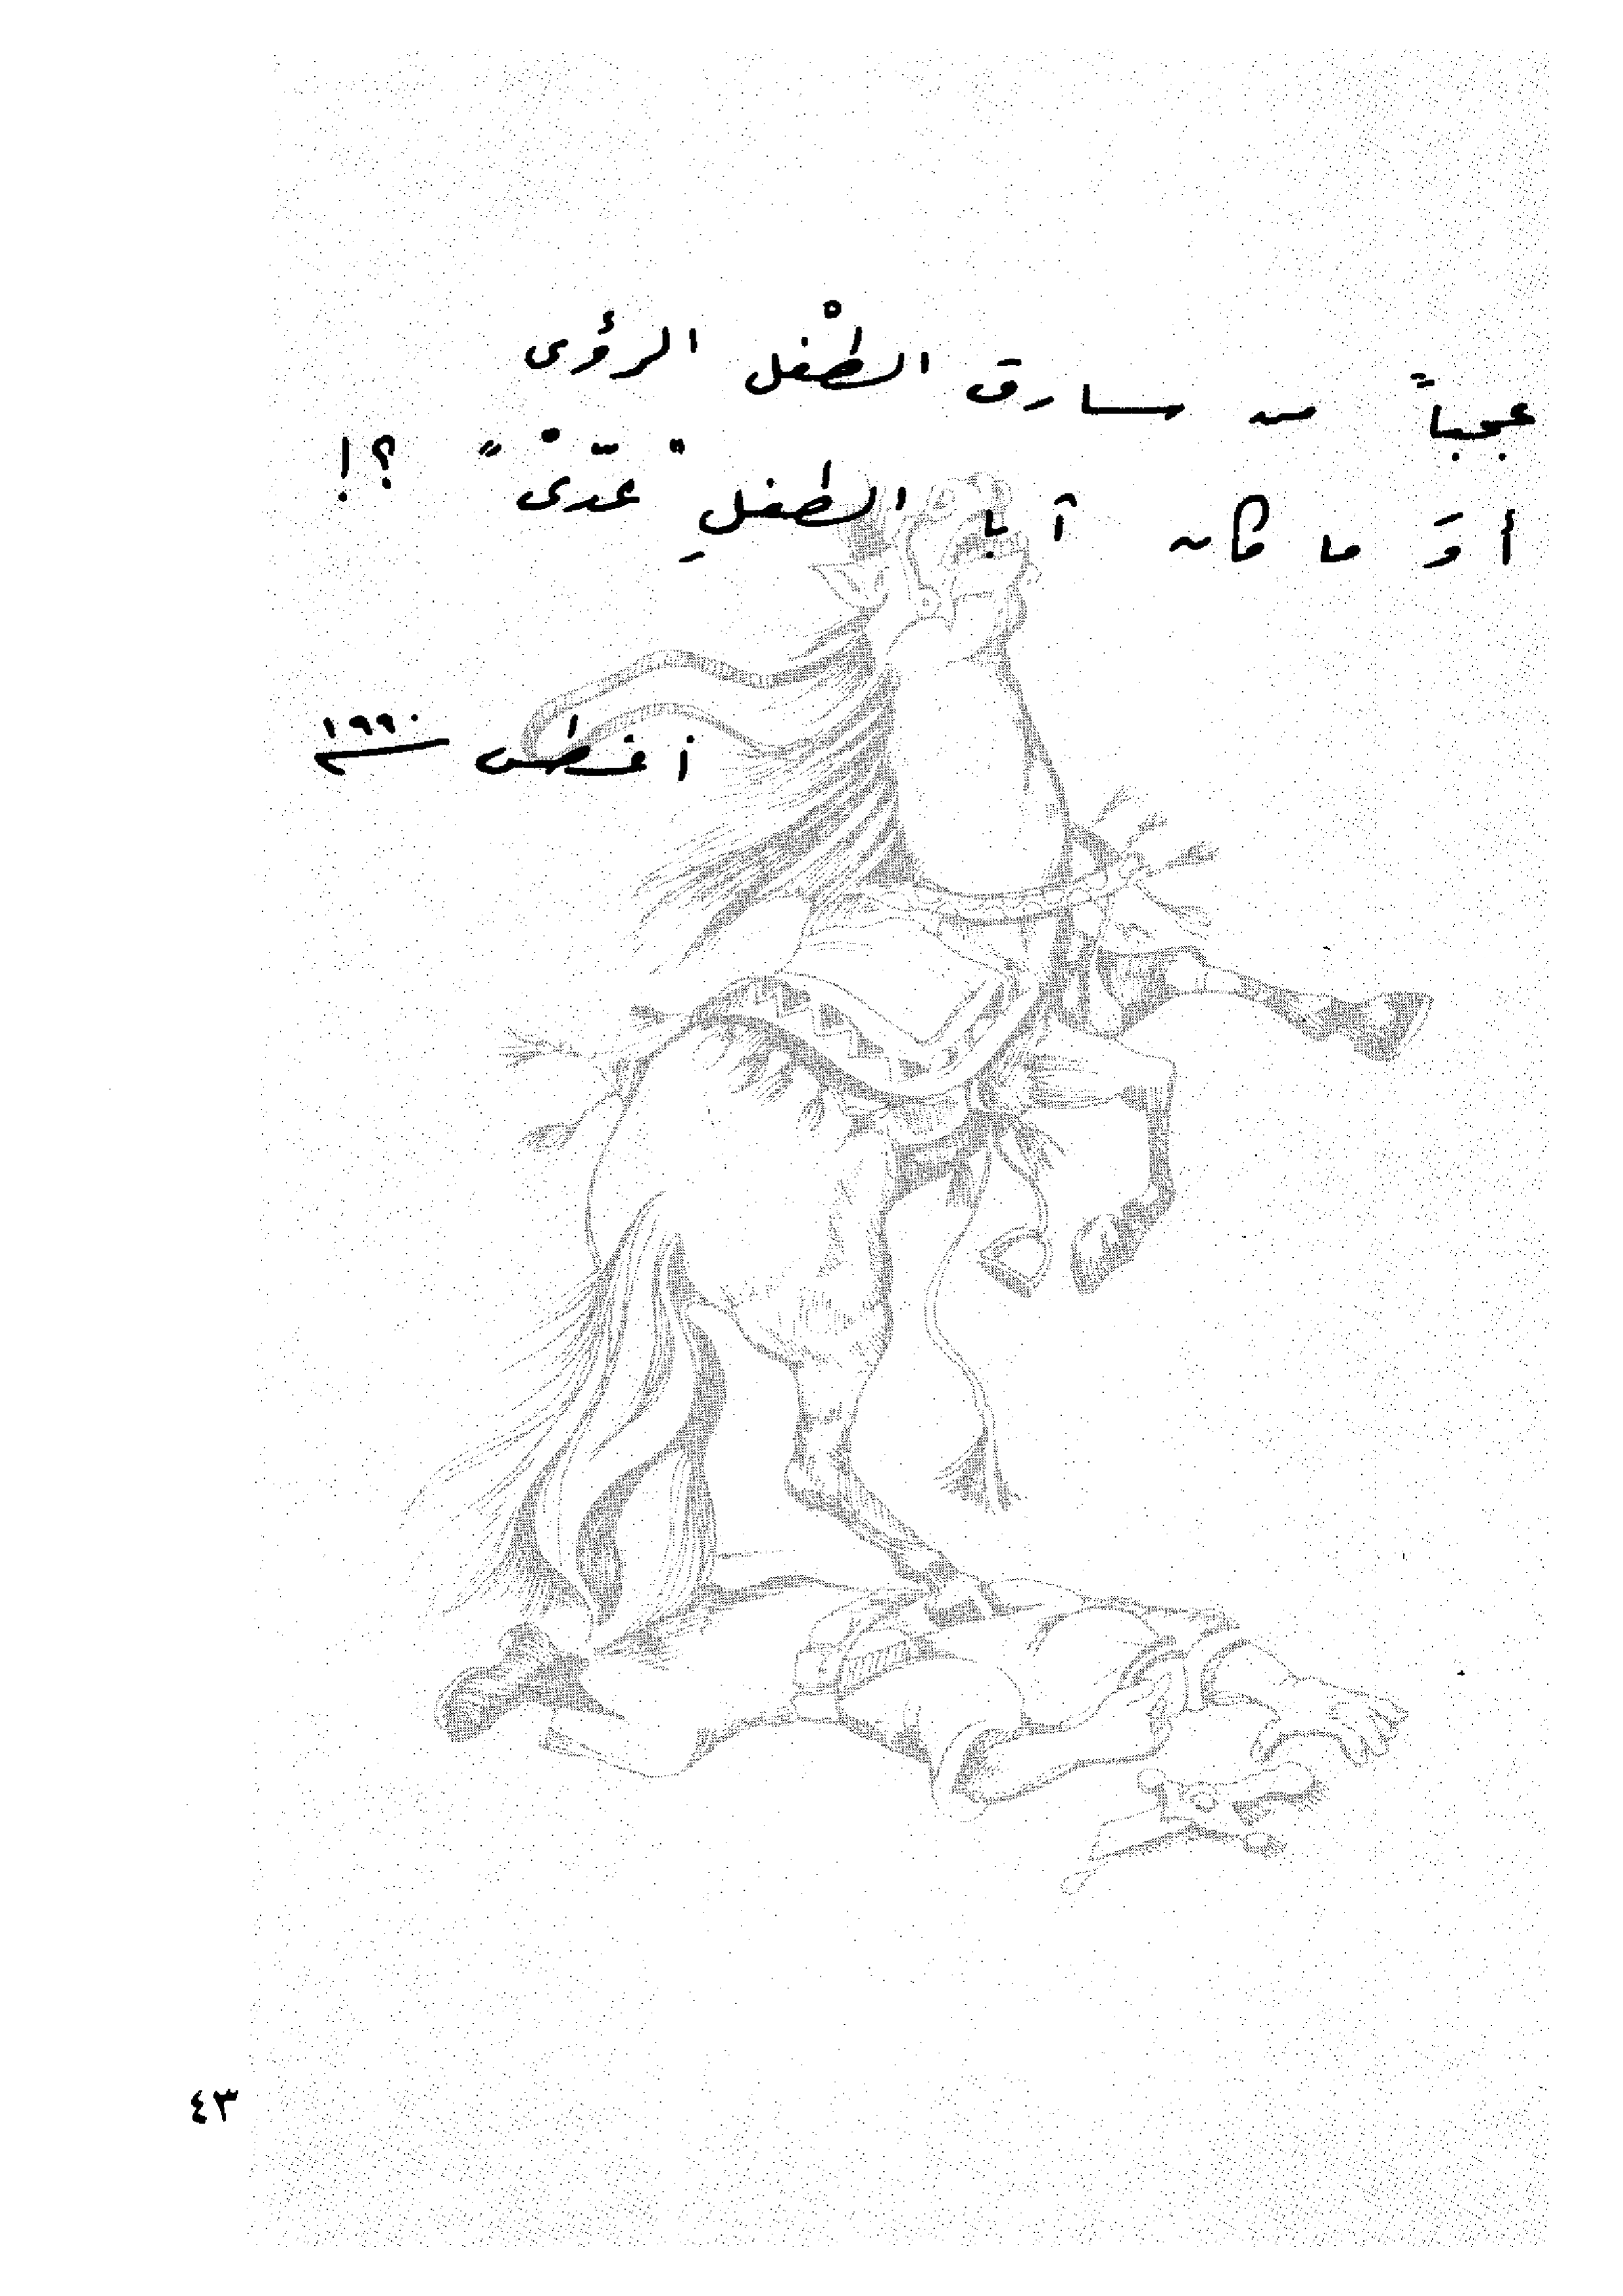 عجباً من سارق الطفْل الرؤى
أوَ ما كان أبا الطفلِ " عدّى " ؟!
أغسطس ١٩٩٠
٤٣